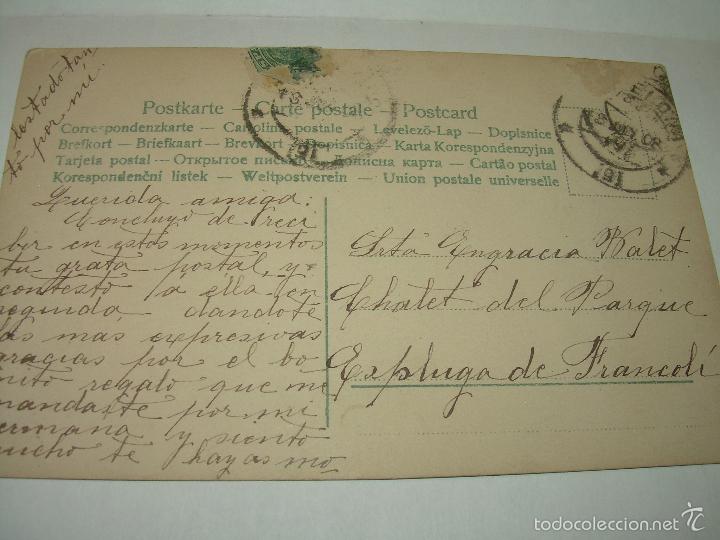 Postkarte – Carte postale – Postcard
Correspondenzkarte – Cartolina postale – Levelező-Lap – Dopisnice
Brefkort – Briefkaart – Brevkort – Dopisnica – Karta Korespondenzyjna
Tarjeta postal – Открытое письмо – Дописна карта – Cartão postal
Korespondenční listek – Weltpostverein – Union postale universelle
Querida amiga:
Concluyo de reci
bir en estos momentos
tu grata postal, y
contesto a ella en
seguida dandote
las mas expresivas
gracias por el bo
nito regalo que me
mandaste por mi
ermana y siento
mucho te hayas mo
lestado tan
to por mi.
Srta Engracia Nalet
Chalet del Parque
Espluga de Francolí
todocoleccion.net